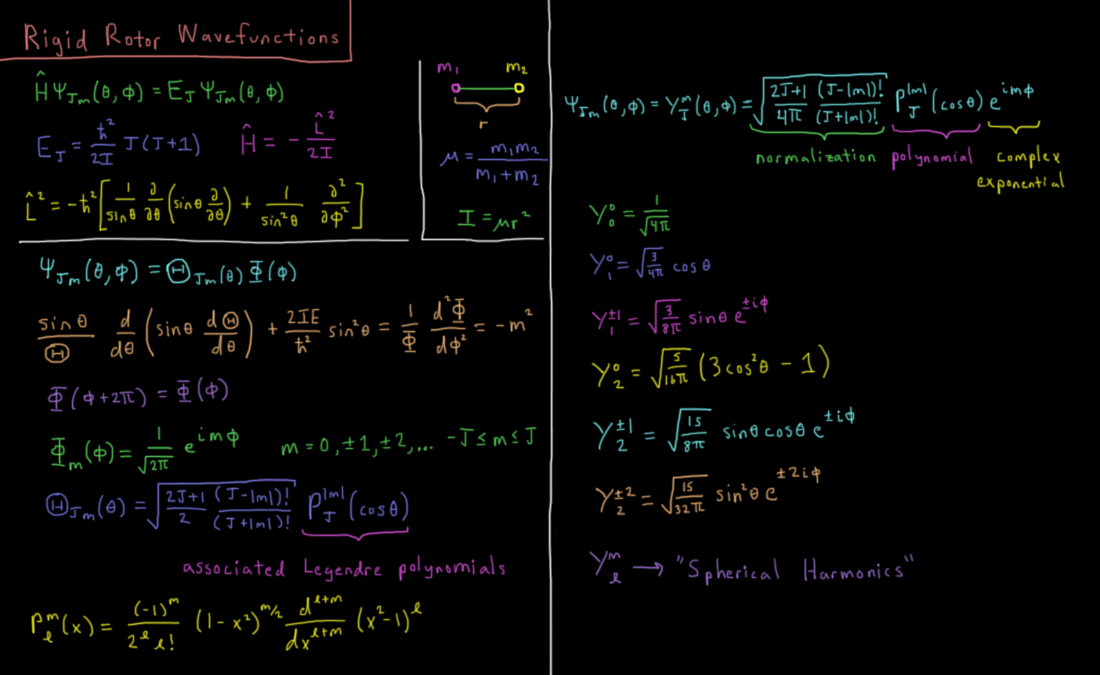 Rigid Rotor Wavefunctions
Ĥ Ψ_Jm(θ,ϕ) = E_J Ψ_Jm(θ,ϕ)
E_J = ħ²/2I J(J+1)    Ĥ = - L̂²/2I
L̂² = -ħ² [ 1/sinθ ∂/∂θ (sinθ ∂/∂θ) + 1/sin²θ ∂²/∂ϕ² ]
m₁ m₂
r
μ = m₁m₂/(m₁+m₂)
I = μr²
Ψ_Jm(θ,ϕ) = Θ_Jm(θ) Φ(ϕ)
sinθ/Θ d/dθ (sinθ dΘ/dθ) + 2IE/ħ² sin²θ = 1/Φ d²Φ/dϕ² = -m²
Φ(ϕ+2π) = Φ(ϕ)
Φ_m(ϕ) = 1/√2π e^{imϕ}    m = 0, ±1, ±2, ... -J ≤ m ≤ J
Θ_Jm(θ) = √( 2J+1/2 (J-|m|)!/(J+|m|)! ) P_J^{|m|}(cosθ)
associated Legendre polynomials
P_ℓ^m(x) = (-1)^m/(2^ℓ ℓ!) (1-x²)^{m/2} d^{ℓ+m}/dx^{ℓ+m} (x²-1)^ℓ
Ψ_Jm(θ,ϕ) = Y_J^m(θ,ϕ) = √( 2J+1/4π (J-|m|)!/(J+|m|)! ) P_J^{|m|}(cosθ) e^{imϕ}
normalization polynomial complex
exponential
Y₀⁰ = 1/√4π
Y₁⁰ = √(3/4π) cosθ
Y₁^{±1} = √(3/8π) sinθ e^{±iϕ}
Y₂⁰ = √(5/16π) (3cos²θ - 1)
Y₂^{±1} = √(15/8π) sinθ cosθ e^{±iϕ}
Y₂^{±2} = √(15/32π) sin²θ e^{±2iϕ}
Y_ℓ^m → "Spherical Harmonics"